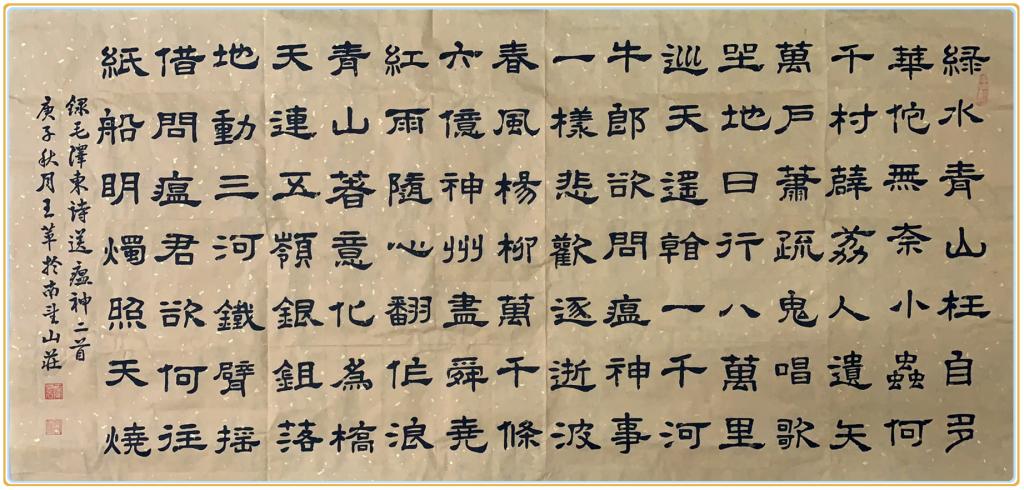 綠水青山枉自多
華佗無奈小蟲何
千村薜荔人遺矢
萬戶蕭疏鬼唱歌
坐地日行八萬里
巡天遙看一千河
牛郎欲問瘟神事
一樣悲歡逐逝波
春風楊柳萬千條
六億神州盡舜堯
紅雨隨心翻作浪
青山著意化為橋
天連五嶺銀鉏落
地動三河鐵臂搖
借問瘟君欲何往
紙船明燭照天燒
錄毛澤東詩送瘟神二首
庚子秋月王革於南山莊